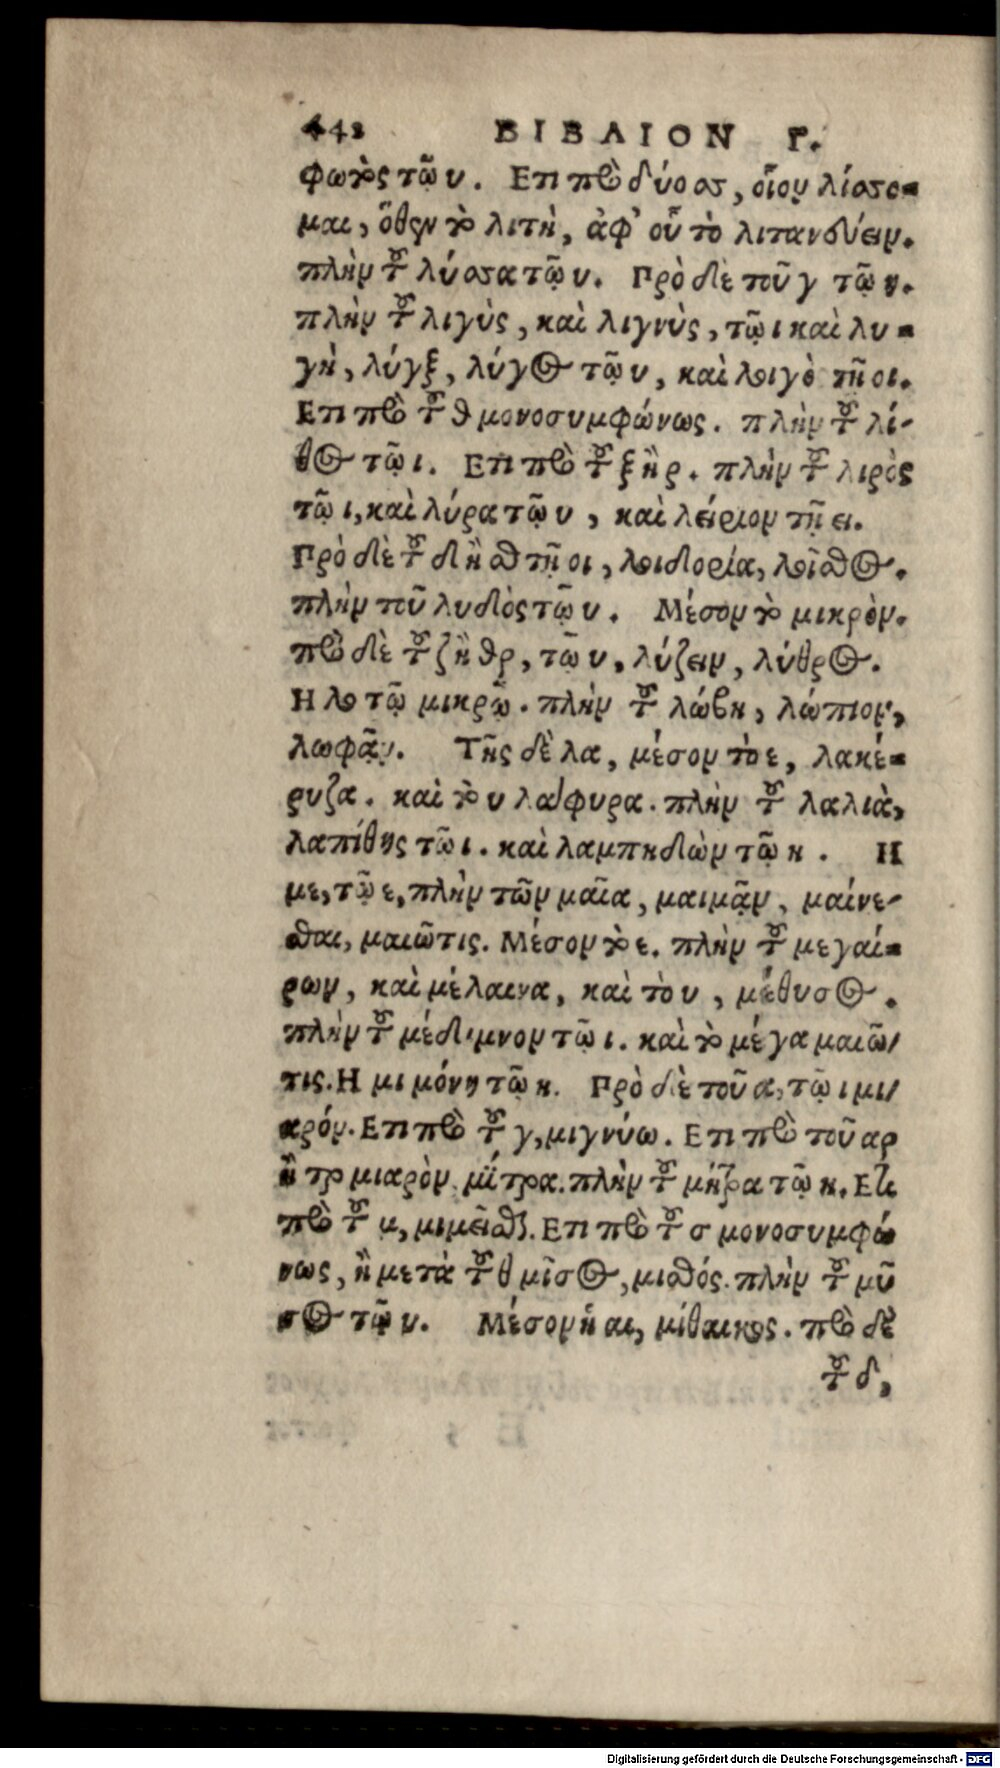 442 ΒΙΒΛΙΟΝ Γ.
φωτὸς τῷ υ. Επὶ πλὸ δύο σσ, οἷον λίσσο-
μαι, ὅθεν τὸ λιτὴ, ἀφ' οὗ τὸ λιτανεύειν.
πλὴν τοῦ λύσσα τῷ υ. Πρὸ δὲ τοῦ γ τῷ υ.
πλὴν τοῦ λιγὺς, καὶ λιγνὺς, τῷ ι καὶ λυ-
γὴ, λύγξ, λύγος τῷ υ, καὶ λοιγὸ τῇ οι.
Επὶ τοῦ θ μονοσυμφώνως. πλὴν τοῦ λί-
θος τῷ ι. Επὶ τοῦ ξ ἢ ρ. πλὴν τοῦ λιρὸς
τῷ ι, καὶ λύρα τῷ υ, καὶ λείριον τῇ ει.
Πρὸ δὲ τοῦ δ ἢ σθ τῇ οι, λοιδορία, λοῖσθος.
πλὴν τοῦ λυδὸς τῷ υ. Μέσον τὸ μικρὸν.
πρὸ δὲ τοῦ ζ ἢ θρ, τῷ υ, λύζειν, λύθρος.
Η λο τῷ μικρῷ. πλὴν τοῦ λώβη, λώπιον,
λωφᾷν. Τῆς δὲ λα, μέσον τὸ ε, λακέ-
ρυζα. καὶ τὸ υ λάφυρα. πλὴν τοῦ λαλιὰ,
λαπίθης τῷ ι. καὶ λαμπηδὼν τῷ η. Η
με, τῷ ε, πλὴν τῶν μαῖα, μαιμᾷν, μαίνε-
σθαι, μαιῶτις. Μέσον τὸ ε. πλὴν τοῦ μεγαί-
ρων, καὶ μέλαινα, καὶ τὸ υ, μέθυσος.
πλὴν τοῦ μέδιμνον τῷ ι. καὶ τὸ μέγα μαιῶ-
τις. Η μι μόνη τῷ η. Πρὸ δὲ τοῦ α, τῷ ι μι-
αρόν. Επὶ τοῦ γ, μιγνύω. Επὶ τοῦ αρ
ἢ τρ μιαρὸν μίτρα. πλὴν τοῦ μήτρα τῷ η. Επὶ
τοῦ μ, μιμεῖσθαι. Επὶ τοῦ σ μονοσυμφώ
νως, ἢ μετὰ τοῦ θ μῖσος, μισθός. πλὴν τοῦ μῦ
σος τῷ υ. Μέσον ἡ αι, μίθαικος. πρὸ δὲ
τοῦ δ,
Digitalisierung gefördert durch die Deutsche Forschungsgemeinschaft - DFG